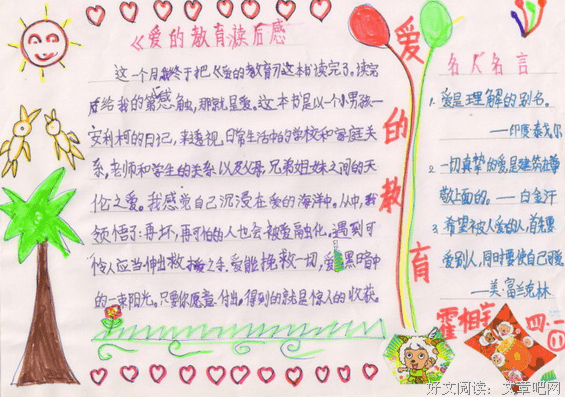 《爱的教育读后感
这一个月我终于把《爱的教育》这本书读完了。读完
后给我的第感触,那就是爱。这本书是以一个小男孩—
安利柯的日记,来透视日常生活中的学校和家庭关
系,老师和学生的关系以及父母,兄弟姐妹之间的天
伦之爱。我感觉自己沉浸在爱的海洋中。从中,我
领悟了:再坏,再可怕的人也会被爱融化。遇到可
怜人应当伸出救援之手。爱能挽救一切,爱黑暗中
的一束阳光。只要你愿意付出。得到的就是惊人的收获。
爱的教育
名人名言
1. 爱是理解的别名。
——印度 泰戈尔
2. 一切真挚的爱是建筑在尊
敬上面的。——白金汗
3. 希望被人爱的人,首先要
爱别人,同时要使自己可爱。
——美·富兰克林
霍相宇 四·一
11
好文阅读:文章吧网